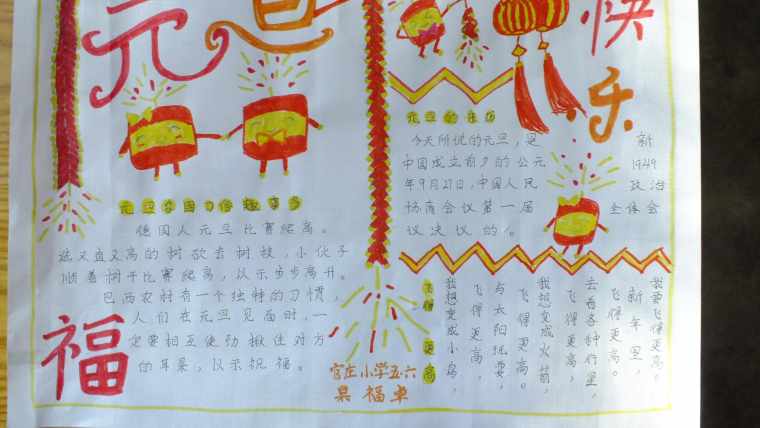 元旦
快乐
元旦各国习俗趣事多
德国人元旦比赛爬高。
选又直又高的树砍去树枝,小伙子
顺着树干比赛爬高,以示步步高升。
巴西农村有一个独特的习惯,
人们在元旦见面时,一
定要相互使劲揪住对方
的耳朵,以示祝福。
福
元旦的来历
今天所说的元旦,是新
中国成立前夕的公元1949
年9月27日,中国人民政治
协商会议第一届全体会
议决议的。
飞得更高
我要飞得更高,
新年里,
飞得更高。
去看各种行星,
飞得更高,
我想变成火箭,
飞得更高。
与太阳玩耍,
飞得更高,
我想变成小鸟,
官庄小学五六
福卓